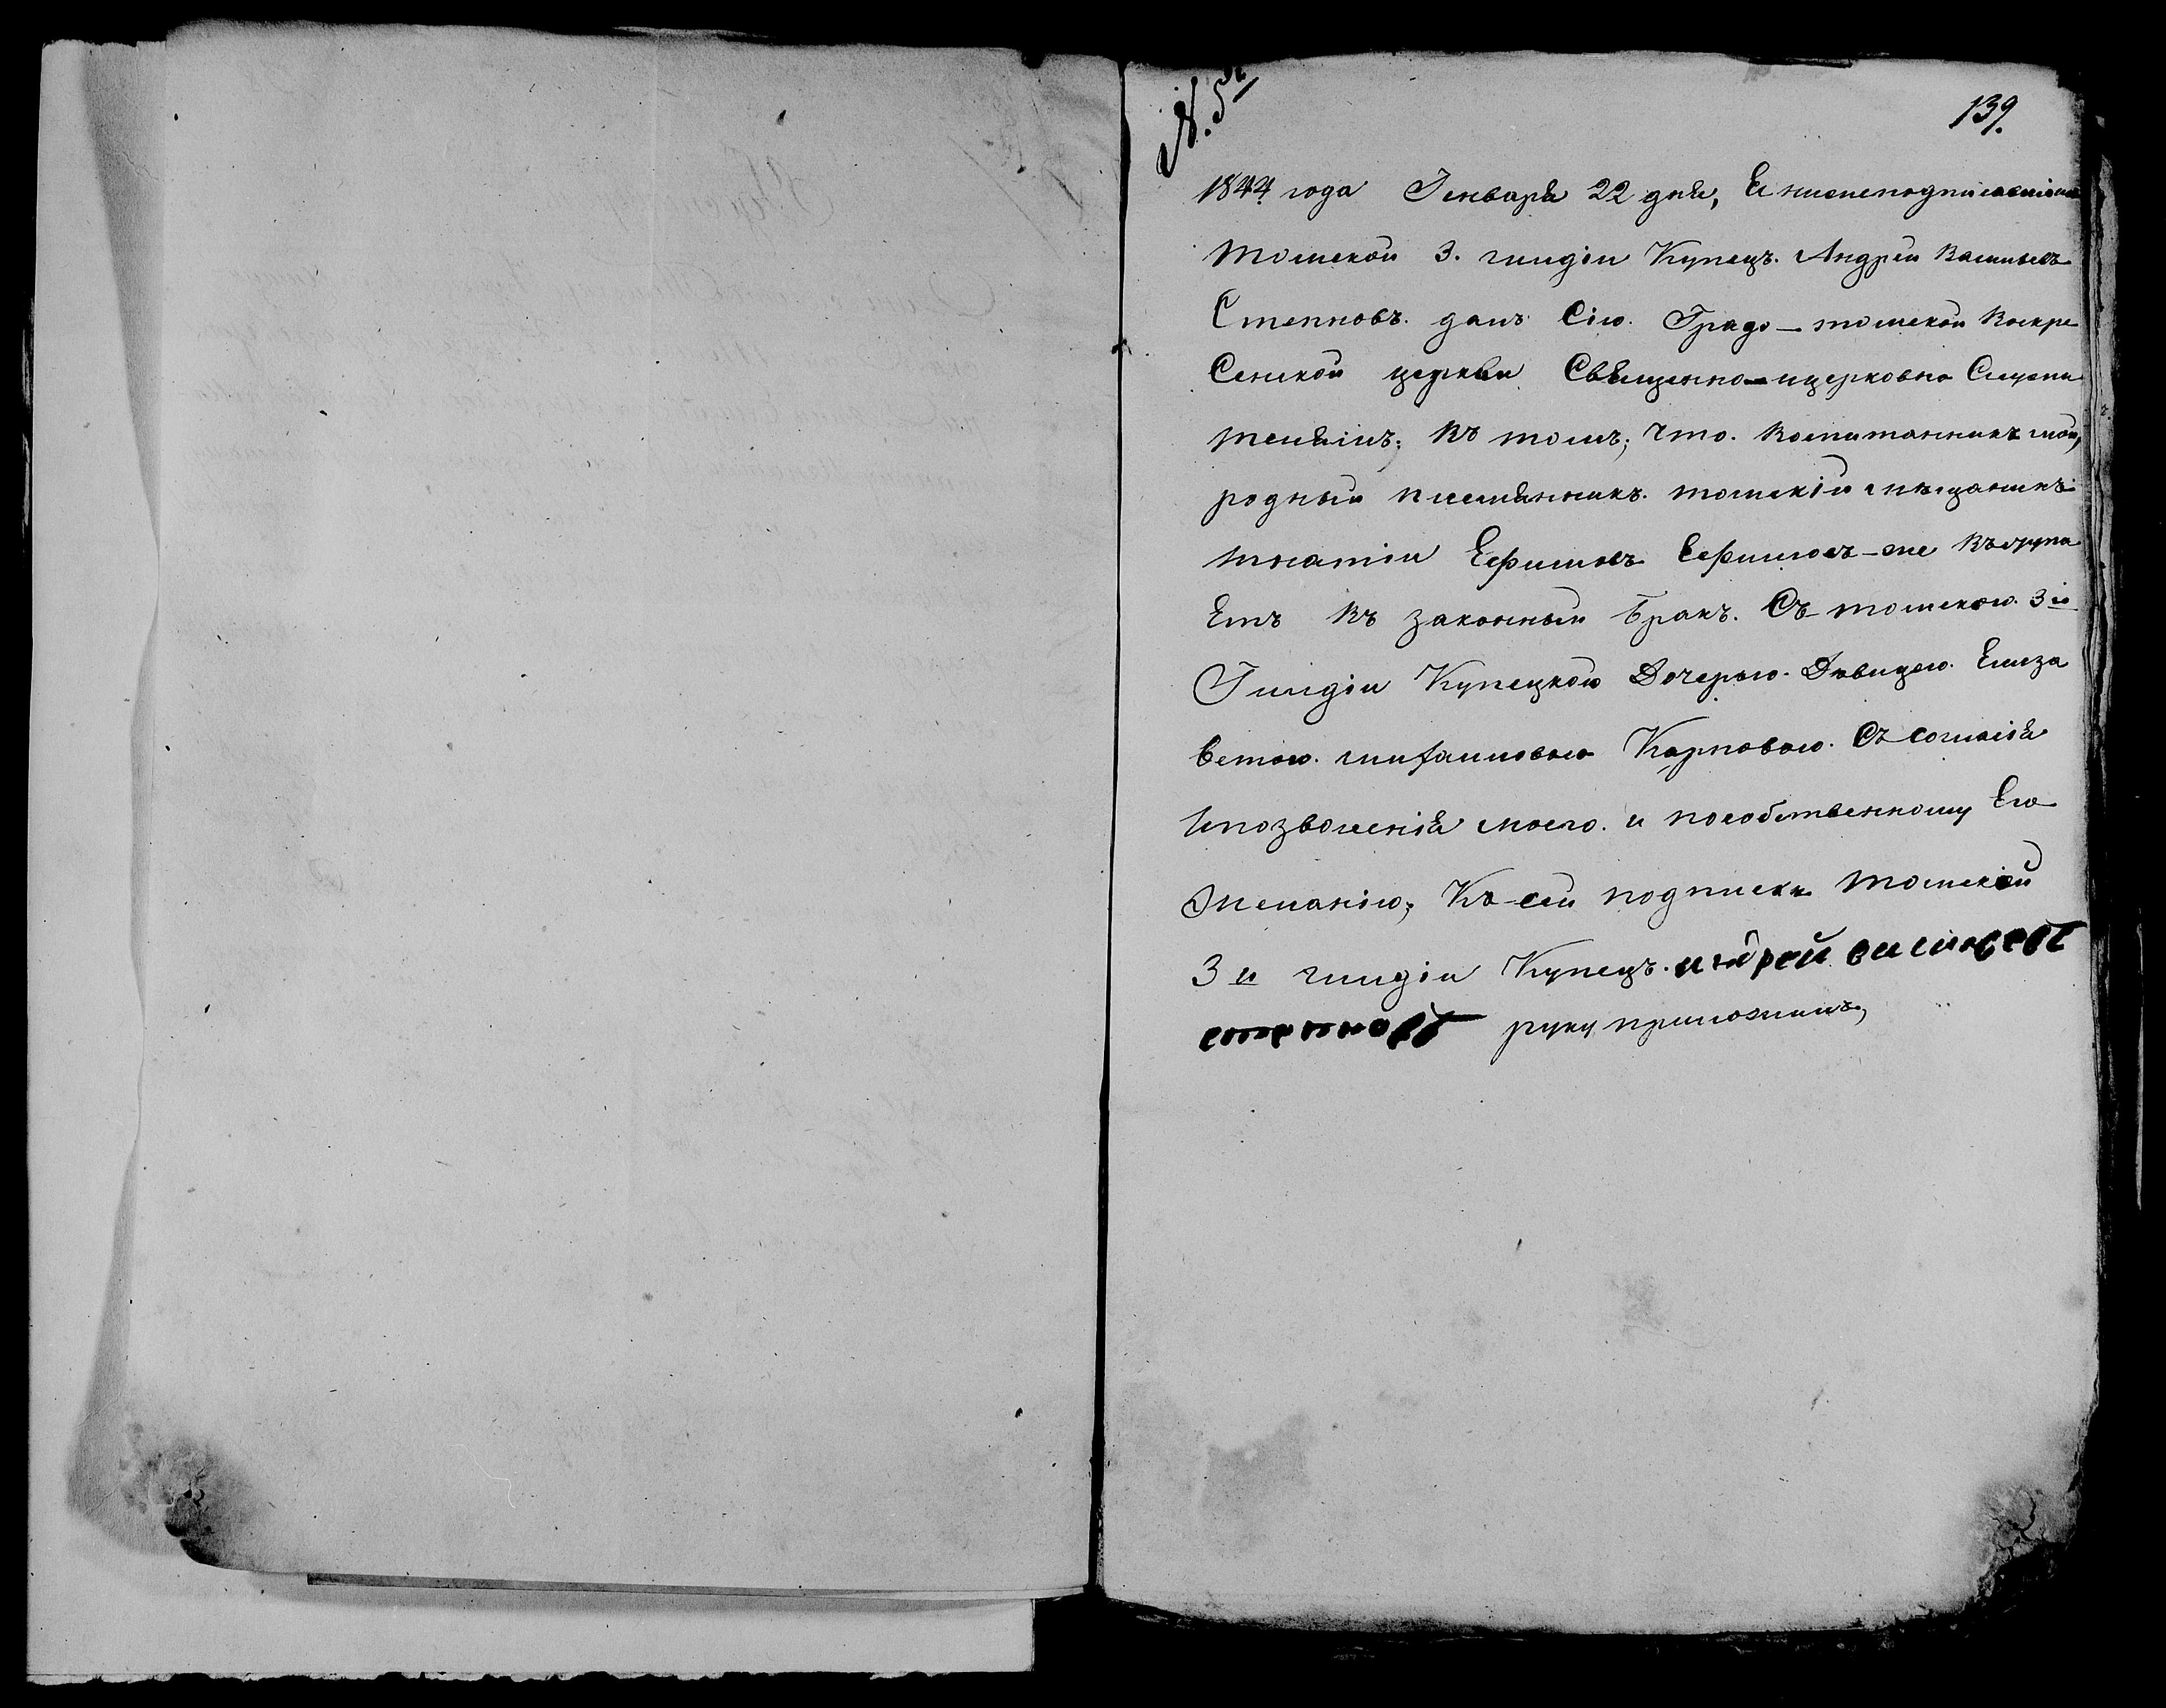 N. 5й
139.
1844 года Генваря 22 дня, Я нижеподписавшiйся
Томской 3. гилдiи Купецъ. Андрей Васильевъ
Степновъ. далъ Сiю. Градо-томской Воскре
Сенской церкви Священно-ицерковно Служи
телямъ; Въ томъ; Что. Воспитанникъ мой,
родный племянникъ. томскiй мѣщанинъ
Игнатiй Ефимовъ Ефимовъ-же Вступа
Етъ Въ законный Бракъ. Съ томскою. 3й
Гилдiи Купецкою Дочерью. Дѣвицею. Елиза
ветою. Карповою. Съ согласiя
Ипозволенiя моего. и пособственному Его
Желанiю; Къ сей подпискѣ Томской
3й гилдiи Купецъ. андрей васильевъ
степновъ руку приложилъ,